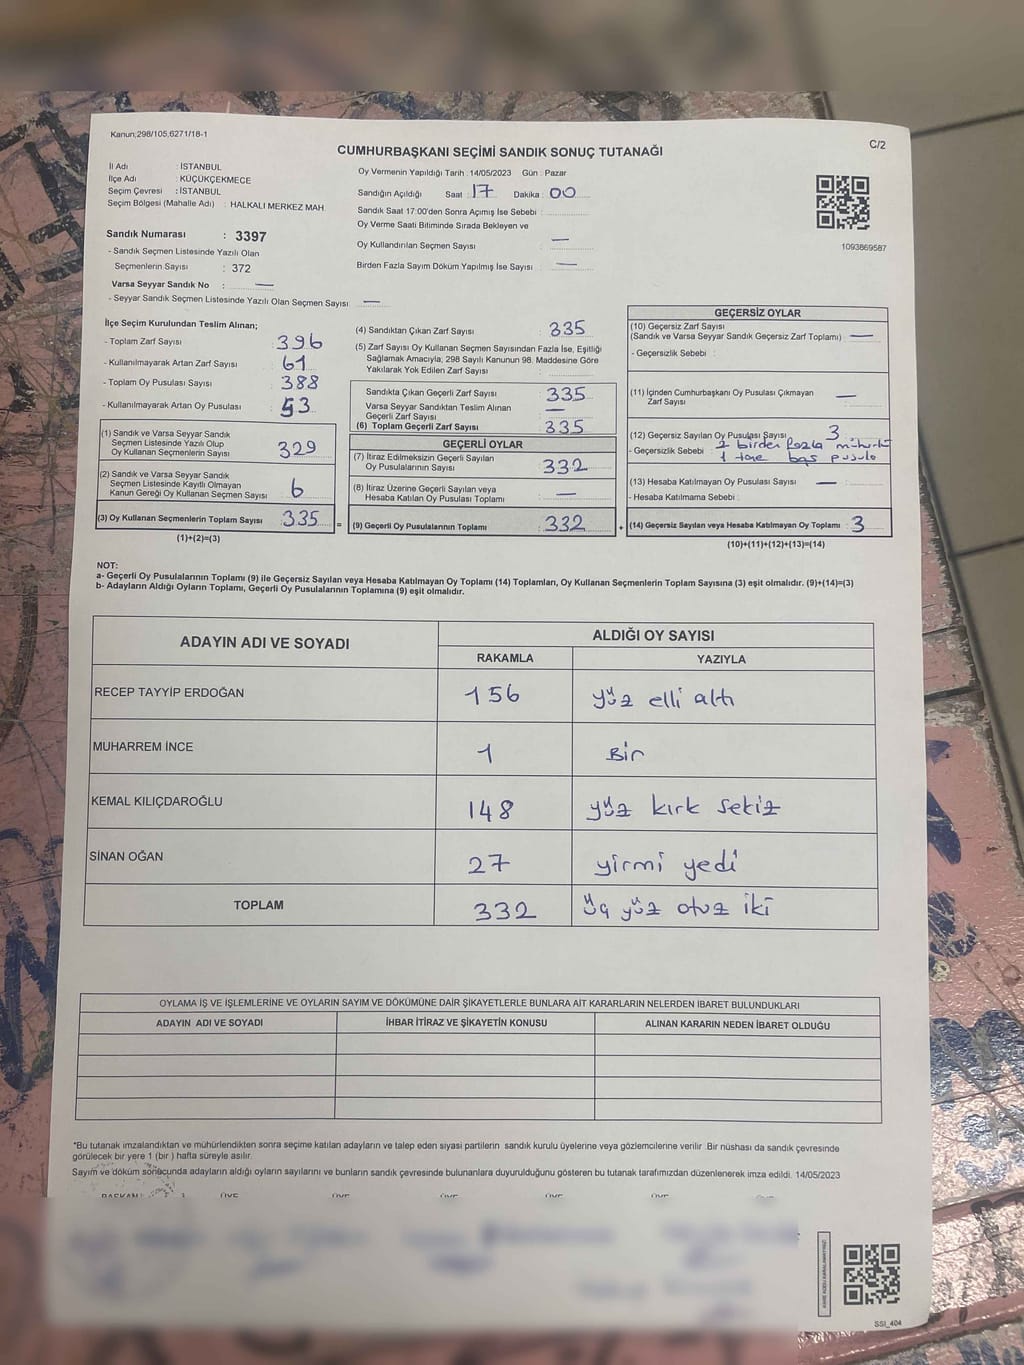 Kanun;298/105,6271/18-1
C/2
CUMHURBAŞKANI SEÇİMİ SANDIK SONUÇ TUTANAĞI
İl Adı : İSTANBUL
İlçe Adı : KÜÇÜKÇEKMECE
Seçim Çevresi : İSTANBUL
Seçim Bölgesi (Mahalle Adı) : HALKALI MERKEZ MAH.
Sandık Numarası : 3397
- Sandık Seçmen Listesinde Yazılı Olan
Seçmenlerin Sayısı : 372
Varsa Seyyar Sandık No : —
- Seyyar Sandık Seçmen Listesinde Yazılı Olan Seçmen Sayısı —
Oy Vermenin Yapıldığı Tarih : 14/05/2023 Gün : Pazar
Sandığın Açıldığı Saat : 17 Dakika : 00
Sandık Saat 17:00'den Sonra Açımış İse Sebebi :
Oy Verme Saati Bitiminde Sırada Bekleyen ve
Oy Kullandırılan Seçmen Sayısı : —
Birden Fazla Sayım Döküm Yapılmış İse Sayısı : —
1093869587
İlçe Seçim Kurulundan Teslim Alınan;
- Toplam Zarf Sayısı : 396
- Kullanılmayarak Artan Zarf Sayısı : 61
- Toplam Oy Pusulası Sayısı : 388
- Kullanılmayarak Artan Oy Pusulası : 53
(1) Sandık ve Varsa Seyyar Sandık
Seçmen Listesinde Yazılı Olup
Oy Kullanan Seçmenlerin Sayısı : 329
(2) Sandık ve Varsa Seyyar Sandık
Seçmen Listesinde Kayıtlı Olmayan
Kanun Gereği Oy Kullanan Seçmen Sayısı : 6
(3) Oy Kullanan Seçmenlerin Toplam Sayısı : 335 =
(1)+(2)=(3)
(4) Sandıktan Çıkan Zarf Sayısı : 335
(5) Zarf Sayısı Oy Kullanan Seçmen Sayısından Fazla İse, Eşitliği
Sağlamak Amacıyla; 298 Sayılı Kanunun 98. Maddesine Göre
Yakılarak Yok Edilen Zarf Sayısı :
Sandıkta Çıkan Geçerli Zarf Sayısı : 335
Varsa Seyyar Sandıktan Teslim Alınan
Geçerli Zarf Sayısı : —
(6) Toplam Geçerli Zarf Sayısı : 335
GEÇERLİ OYLAR
(7) İtiraz Edilmeksizin Geçerli Sayılan
Oy Pusulalarının Sayısı : 332
(8) İtiraz Üzerine Geçerli Sayılan veya
Hesaba Katılan Oy Pusulası Toplamı : —
(9) Geçerli Oy Pusulalarının Toplamı : 332 +
GEÇERSİZ OYLAR
(10) Geçersiz Zarf Sayısı
(Sandık ve Varsa Seyyar Sandık Geçersiz Zarf Toplamı) : —
- Geçersizlik Sebebi :
(11) İçinden Cumhurbaşkanı Oy Pusulası Çıkmayan
Zarf Sayısı : —
(12) Geçersiz Sayılan Oy Pusulası Sayısı : 3
- Geçersizlik Sebebi : 2 birden fazla mühürlü
1 tane boş pusula
(13) Hesaba Katılmayan Oy Pusulası Sayısı : —
- Hesaba Katılmama Sebebi :
(14) Geçersiz Sayılan veya Hesaba Katılmayan Oy Toplamı : 3
(10)+(11)+(12)+(13)=(14)
NOT:
a- Geçerli Oy Pusulalarının Toplamı (9) ile Geçersiz Sayılan veya Hesaba Katılmayan Oy Toplamı (14) Toplamları, Oy Kullanan Seçmenlerin Toplam Sayısına (3) eşit olmalıdır. (9)+(14)=(3)
b- Adayların Aldığı Oyların Toplamı, Geçerli Oy Pusulalarının Toplamına (9) eşit olmalıdır.
ADAYIN ADI VE SOYADI
ALDIĞI OY SAYISI
RAKAMLA YAZIYLA
RECEP TAYYİP ERDOĞAN 156 yüz elli altı
MUHARREM İNCE 1 Bir
KEMAL KILIÇDAROĞLU 148 yüz kırk sekiz
SİNAN OĞAN 27 yirmi yedi
TOPLAM 332 üç yüz otuz iki
OYLAMA İŞ VE İŞLEMLERİNE VE OYLARIN SAYIM VE DÖKÜMÜNE DAİR ŞİKAYETLERLE BUNLARA AİT KARARLARIN NELERDEN İBARET BULUNDUKLARI
ADAYIN ADI VE SOYADI İHBAR İTİRAZ VE ŞİKAYETİN KONUSU ALINAN KARARIN NEDEN İBARET OLDUĞU
*Bu tutanak imzalandıktan ve mühürlendikten sonra seçime katılan adayların ve talep eden siyasi partilerin sandık kurulu üyelerine veya gözlemcilerine verilir. Bir nüshası da sandık çevresinde
görülecek bir yere 1 (bir) hafta süreyle asılır.
Sayım ve döküm sonucunda adayların aldığı oyların sayılarını ve bunların sandık çevresinde bulunanlara duyurulduğunu gösteren bu tutanak tarafımızdan düzenlenerek imza edildi. 14/05/2023
BAŞKAN ÜYE ÜYE ÜYE ÜYE ÜYE ÜYE
SSİ_404